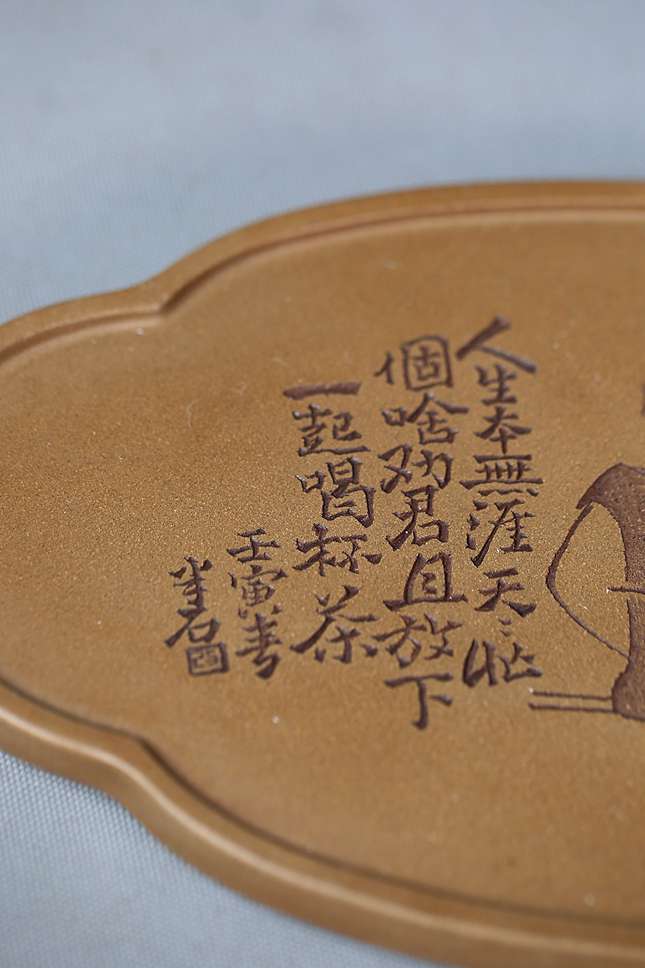 人生本無涯天〻忙
個啥劝君且放下
一起喝杯茶
壬寅春
石